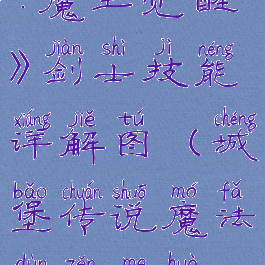 ：魔王觉醒
jiàn shì jì néng
》剑士技能
xiáng jiě tú chéng
详解图（城
bǎo chuán shuō mó fǎ
堡传说魔法
dùn zěn me huò